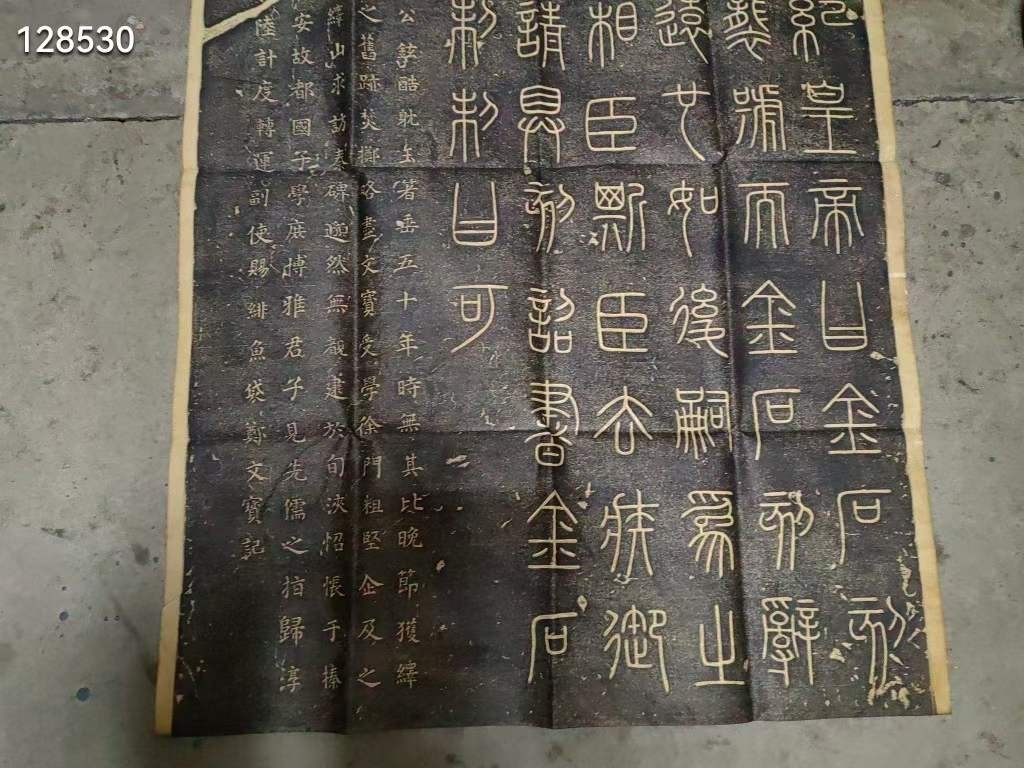 128530
紀皇帝曰金石刻
襲號而金石刻辭
遠也如後嗣為之
相臣斯臣去疾御
請具刻詔書金石
制曰可
公鉉酷躭玉箸垂五十年時無其比晚節獲繹
之舊跡焚擲略盡文寶受學徐門粗堅企及之
繹山求訪秦碑邈然無覩逮於旬浹怊悵于榛
安故都國子學庶博雅君子見先儒之指歸淳
陸計度轉運副使賜緋魚袋鄭文寶記